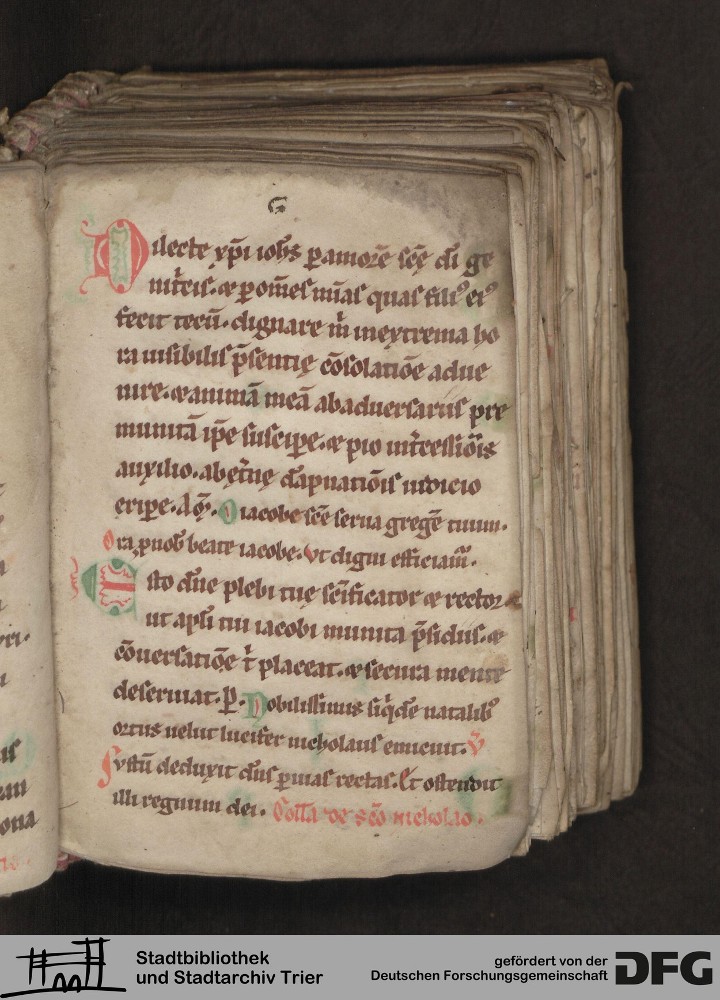 G
Dilecte xp̄i ioħs ꝑ amorē scē di ge
nitͥcis. ⁊ ꝑ om̄es mīas quas fili᷒ ei᷒
fecit tecū. dignare m̄ in extrema ho
ra uisibilis p̄sentię cōsolatiōe adue
nire. ⁊ animā meā ab aduersariis pre
munitā ip̄e suscipe. ⁊ pio int̄cessiōis
auxilio. ab ęt̄nę dāpnatiōis iudicio
eripe. Am̄. O iacobe scē serua gregē tuum.
Ora ꝓ nob̄ beate iacobe. Vt digni efficiam̄.
Esto dn̄e plebi tuę sc̄ificator ⁊ rector.
ut apl̄i tui iacobi munita p̄sidiis. ⁊
cōuersatiōe t̄ placeat. ⁊ secura mente
deseruiat. P. Nobilissimis siq̄dē natalib᷒
ortus uelut lucifer nicholaus emicuit. V̄
Iustū deduxit dn̄s ꝑ uias rectas. Et ostendit
illi regnum dei. Coll̄a de sc̄o nicholao.
Stadtbibliothek
und Stadtarchiv Trier
gefördert von der
Deutschen Forschungsgemeinschaft
DFG